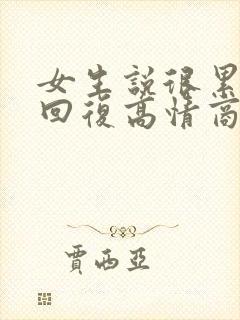 女生說很累
回復高情商
賈西亞